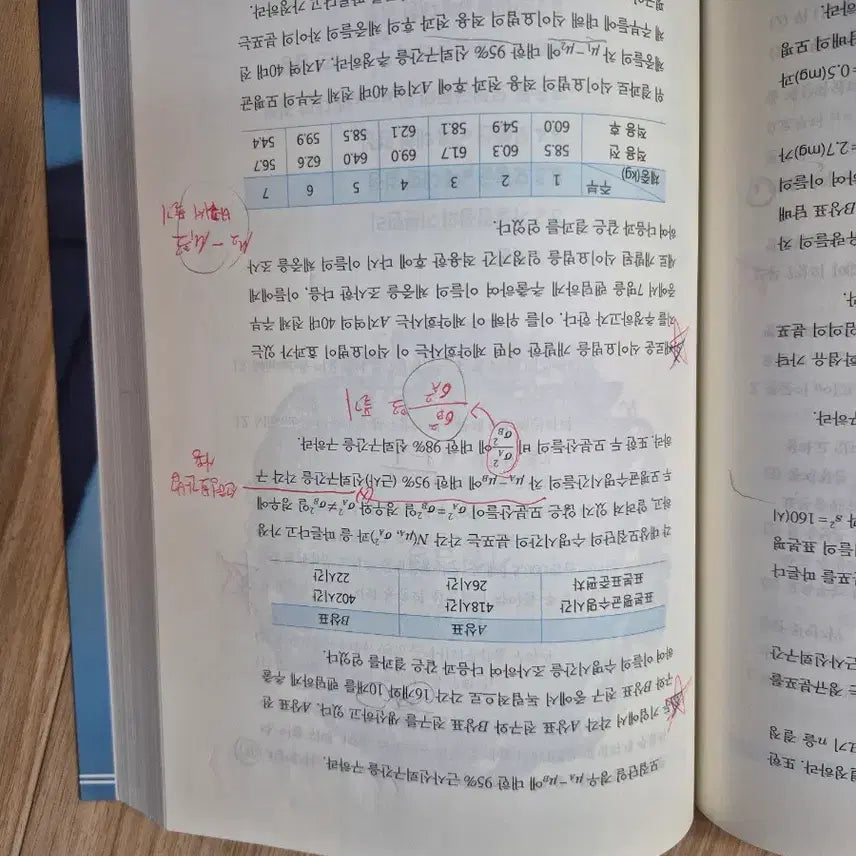 결정하라. 또한
크기 n을 결정
는 정규분포를
근사신뢰구간
분포를 따른다
이들의 표본평
과 s²=160(시
구하라.
임의의 분포
다.
유량들의 차
B상표 담배
하여 이들의
=2.7(mg)가
=0.5(mg)과
담배의 모평
하라.
모집단일 경우 μA−μB에 대한 95% 근사신뢰구간을 구하라.
두 기업에서 각각 A상표 전구와 B상표 전구를 생산하고 있다. A상표 전
구와 B상표 전구 중에서 독립적으로 각각 16개와 10개를 랜덤하게 추출
하여 이들의 수명시간을 조사하여 다음과 같은 결과를 얻었다.
A상표 B상표
표본평균수명시간 418시간 402시간
표본표준편차 26시간 22시간
각 대상모집단의 수명시간의 분포는 각각 N(μA, σA²)과 을 따른다고 가정
하고, 알려져 있지 않은 모분산들이 σA²=σB²일 경우와 σA²≠σB²일 경우에
두 모평균수명시간들의 차 μA−μB에 대한 95% (근사)신뢰구간을 각각 구
하라. 또한 두 모분산들의 비 σA²/σB²에 대한 98% 신뢰구간을 구하라.
선형보간법
사용
σB²/σA² 으로 풀기
새로운 식이요법을 개발한 어떤 제약회사는 이 식이요법이 효과가 있는
지를 추정하고자 한다. 이를 위해 이 제약회사는 A지역의 40대 전체 주부
중에서 7명을 랜덤하게 추출하여 이들의 체중을 조사한 다음, 이들에게
새로 개발된 식이요법을 일정기간 적용한 후에 다시 이들의 체중을 조사
하여 다음과 같은 결과를 얻었다.
μ2 − μ1으로
바꿔서 풀기
체중(kg) 주부 1 2 3 4 5 6 7
적용 전 58.5 60.3 61.7 69.0 64.0 62.6 56.7
적용 후 60.0 54.9 58.1 62.1 58.5 59.9 54.4
위 결과로 식이요법의 적용 전과 후에 A지역 40대 전체 주부의 모평균
체중들의 차 μ1−μ2에 대한 95% 신뢰구간을 추정하라. A지역 40대 전
체 주부들에 대해 식이요법의 적용 전과 후의 체중들의 차이의 분포는